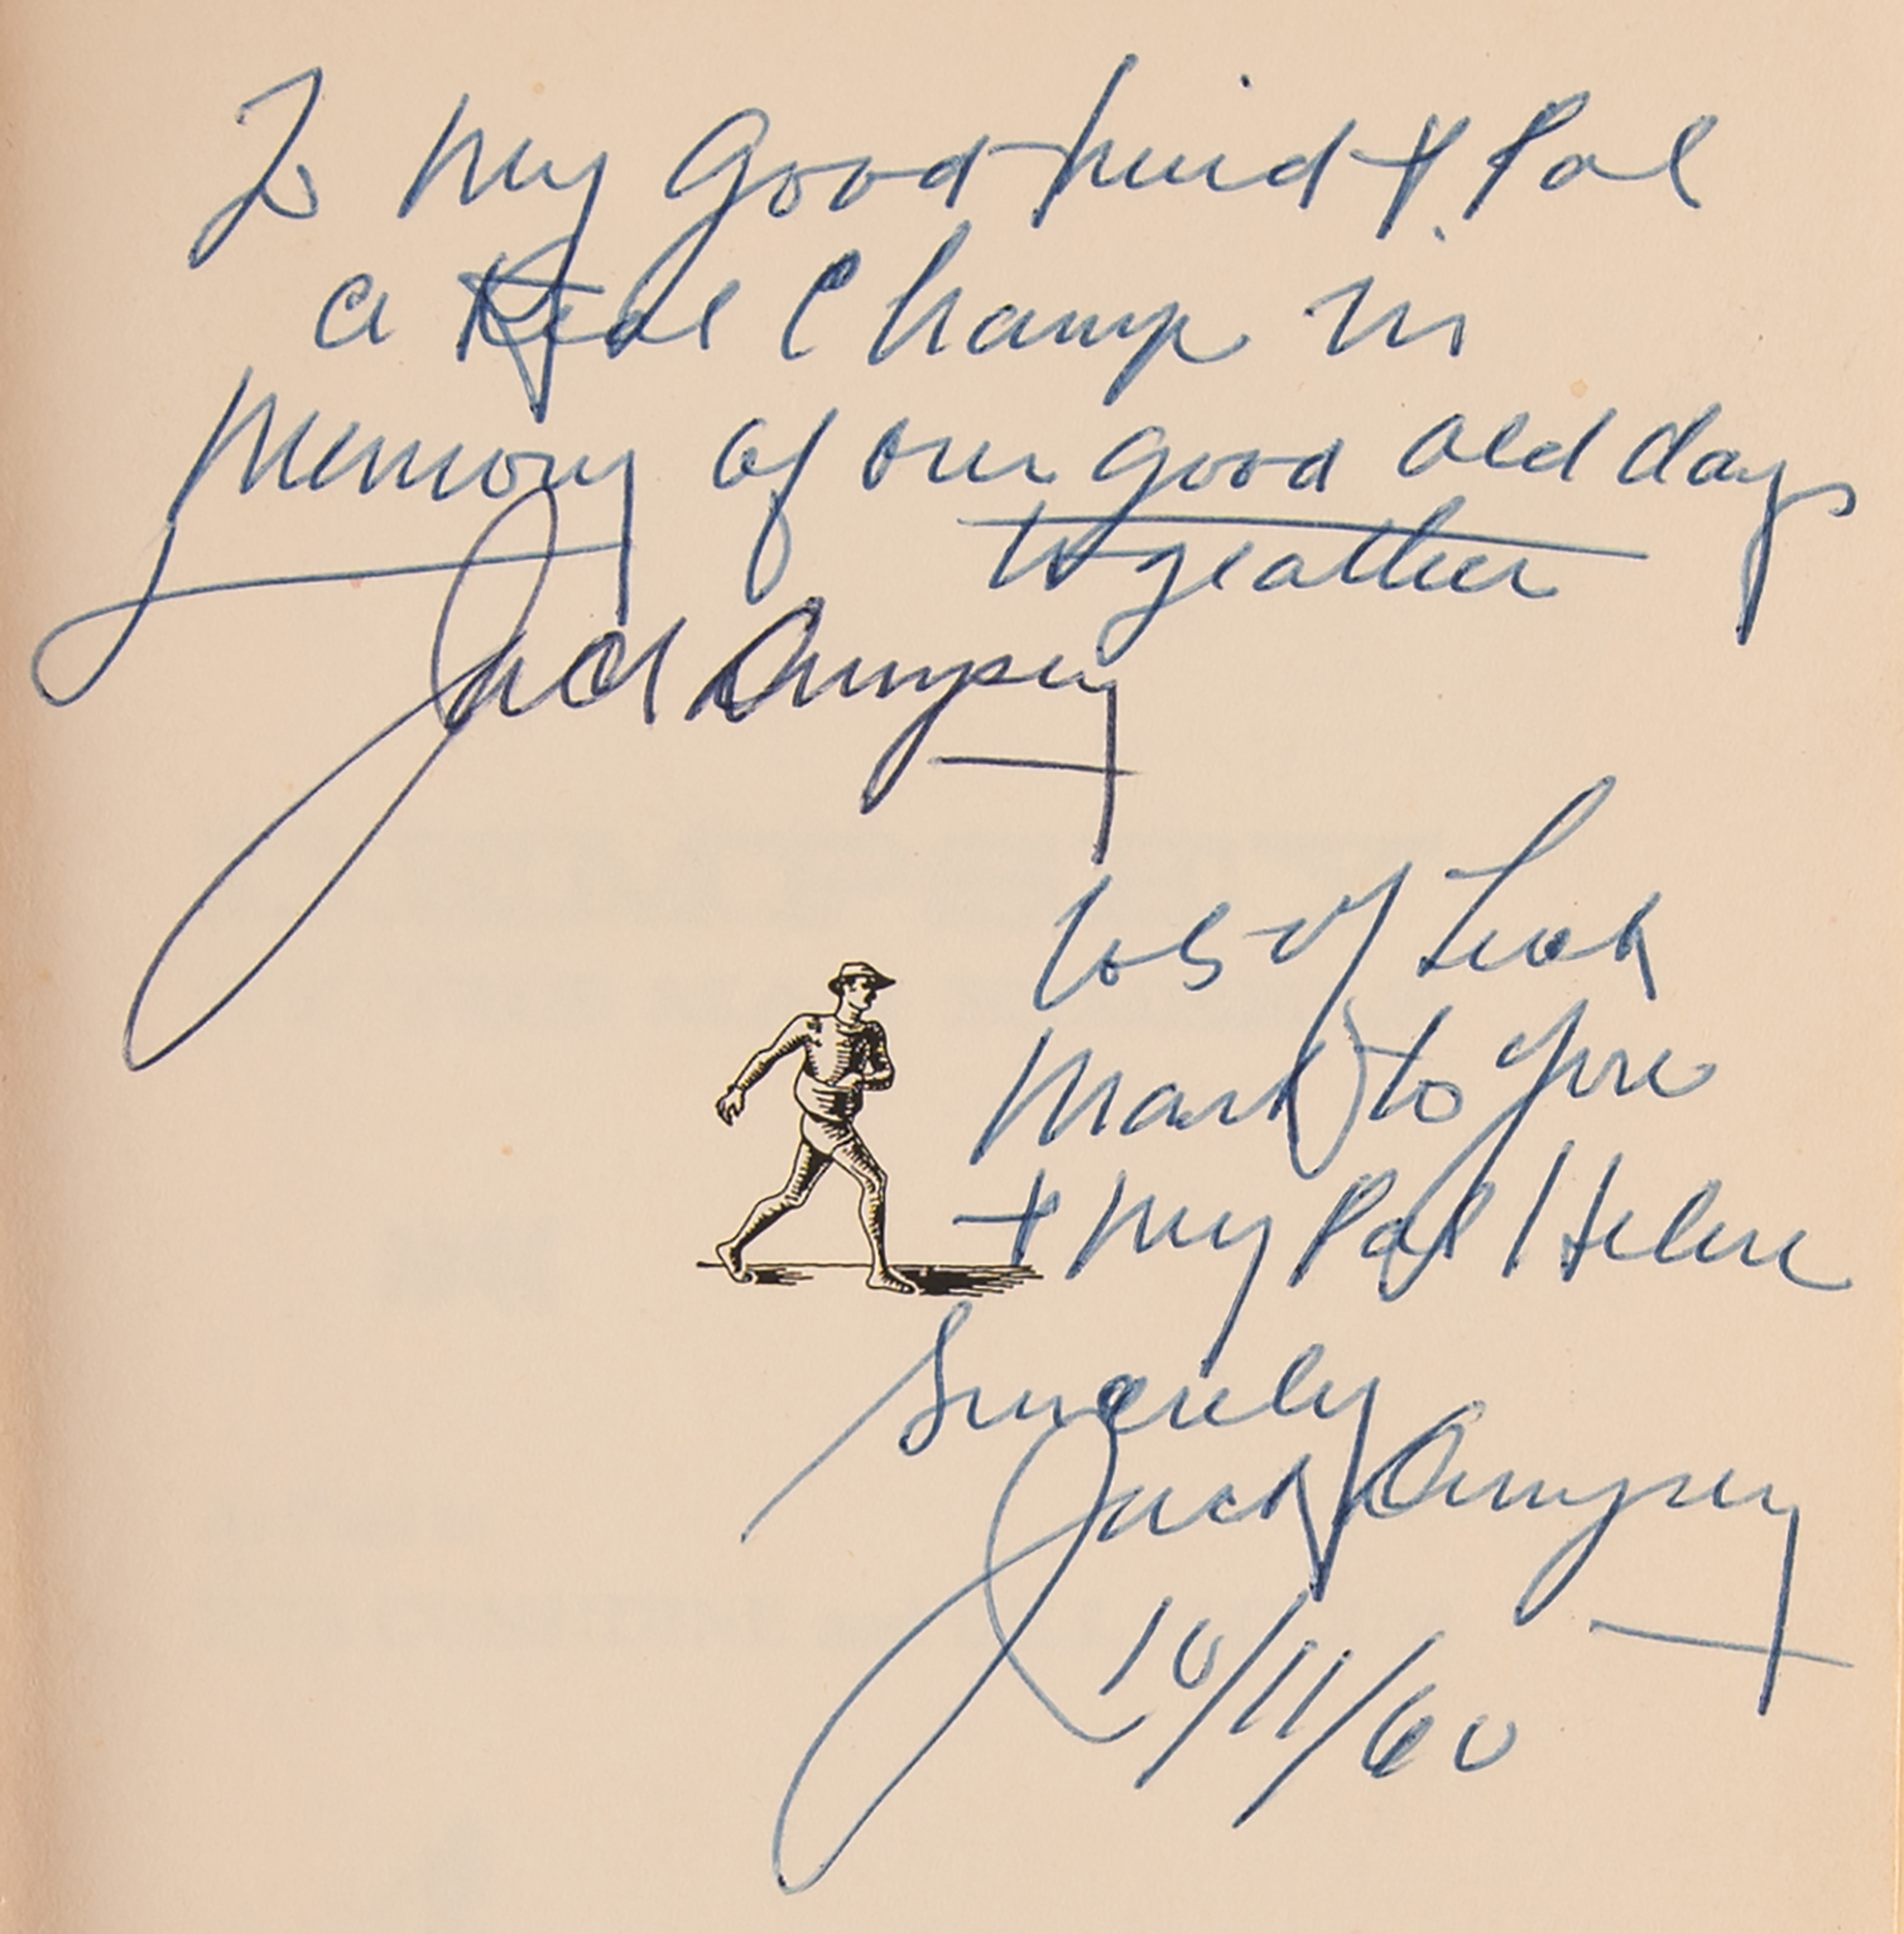 To my Good friend & Pal
a Real Champ in
memory of our good old days
togeather
Jack Dempsey
lots of Luck
Mark to you
& my Pal Helene
Sincerely
Jack Dempsey
10/11/60